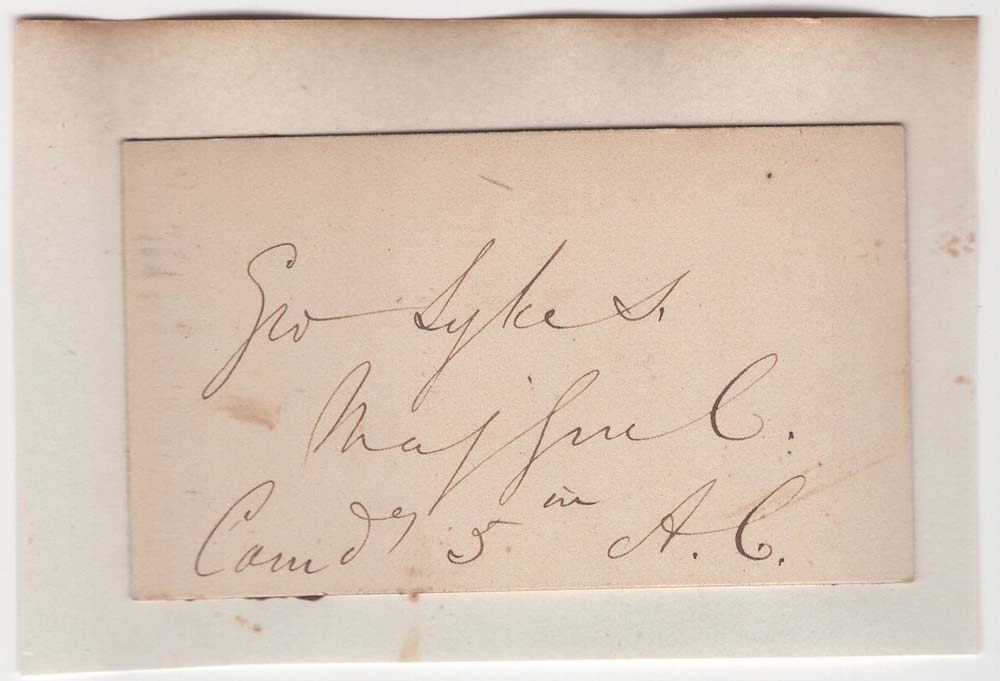 Geo Sykes.
Maj Genl.
Comdg 5th A.C.